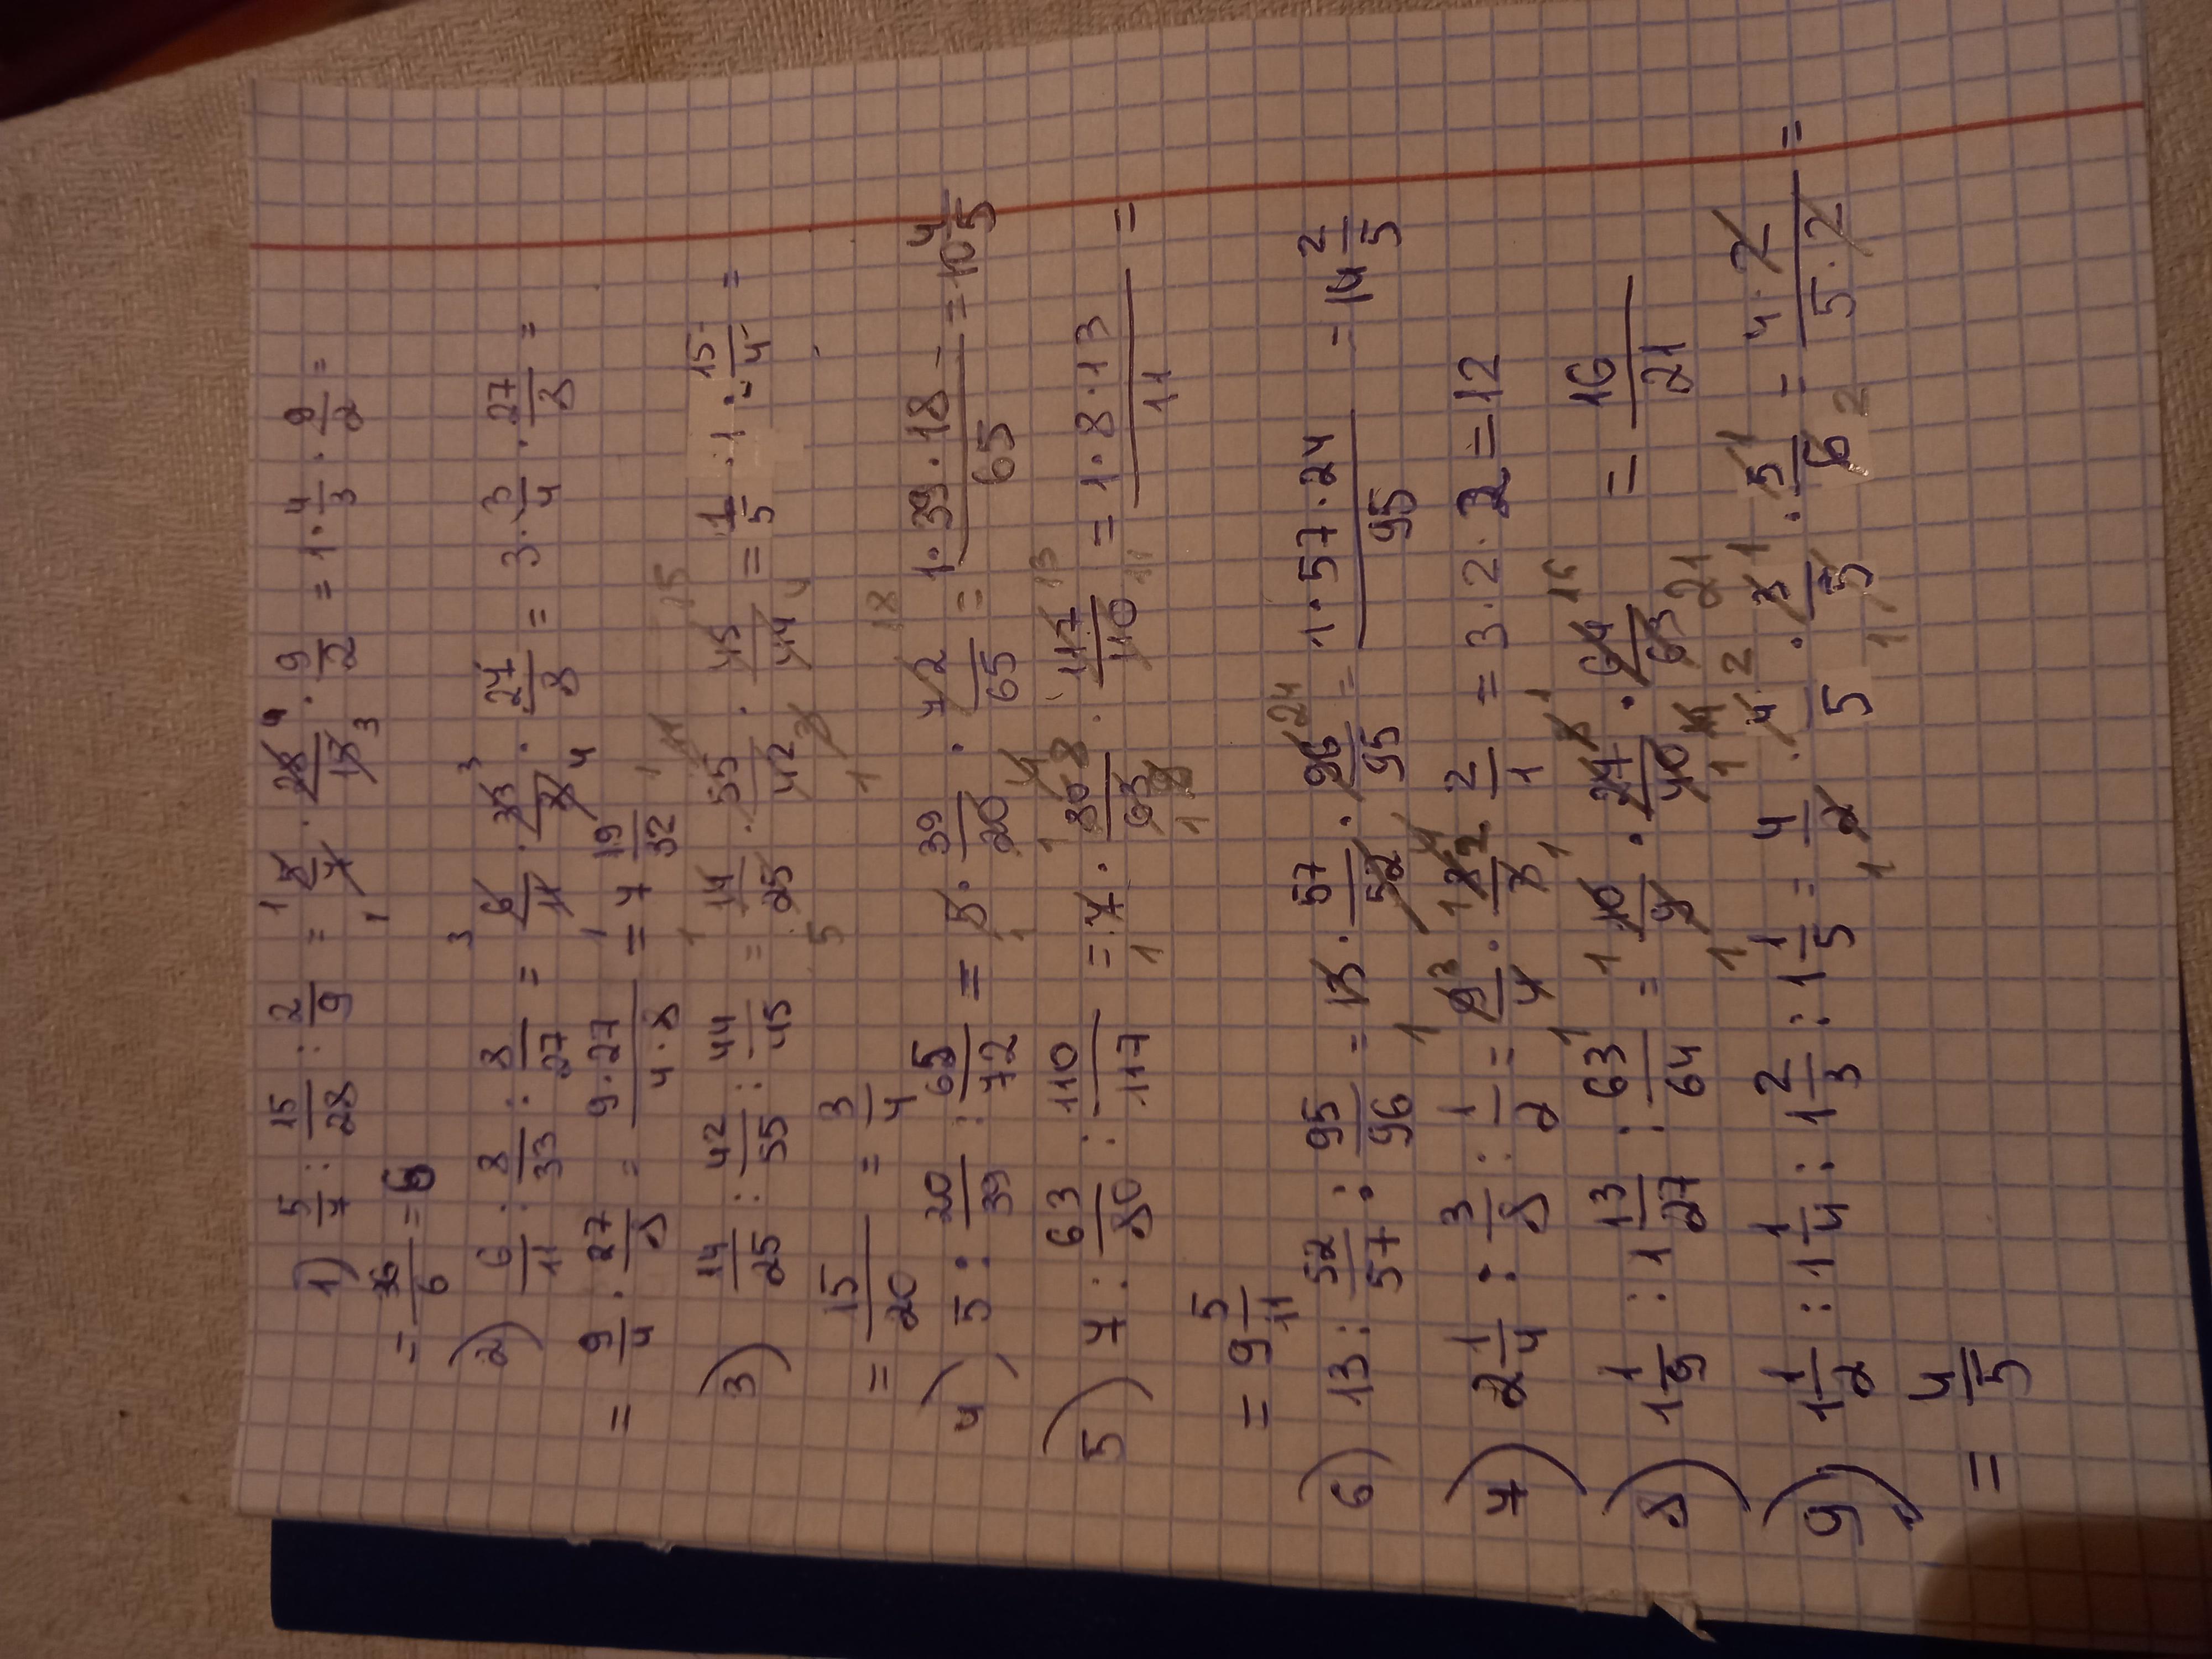 1) 5/7 : 15/28 : 2/9 = 5/7 · 28/15 · 9/2 = 1 · 4/3 · 9/2 =
= 36/6 = 6
2) 6/11 : 8/33 : 8/27 = 6/11 · 33/8 · 27/8 = 3 · 3/4 · 27/8 =
= 9/4 · 27/8 = 9·27/4·8 = 7 19/32
3) 14/25 : 42/55 : 44/45 = 14/25 · 55/42 · 45/44 = 1/5 · 1 · 15/4 =
= 15/20 = 3/4
4) 5 : 20/39 : 65/72 = 5 · 39/20 · 72/65 = 1·39·18/65 = 10 4/5
5) 7 : 63/80 : 110/117 = 7 · 80/63 · 117/110 = 1·8·13/11 =
= 9 5/11
6) 13 : 52/57 : 95/96 = 13 · 57/52 · 96/95 = 1·57·24/95 = 14 2/5
7) 2 1/4 : 3/8 : 1/2 = 9/4 · 8/3 · 2/1 = 3 · 2 · 2 = 12
8) 1 1/9 : 1 13/27 : 63/64 = 10/9 · 27/40 · 64/63 = 16/21
9) 1 1/2 : 1 1/4 : 1 2/3 : 1 1/5 = 4/5 · 3/5 · 5/6 = 4·2/5·2 =
= 4/5